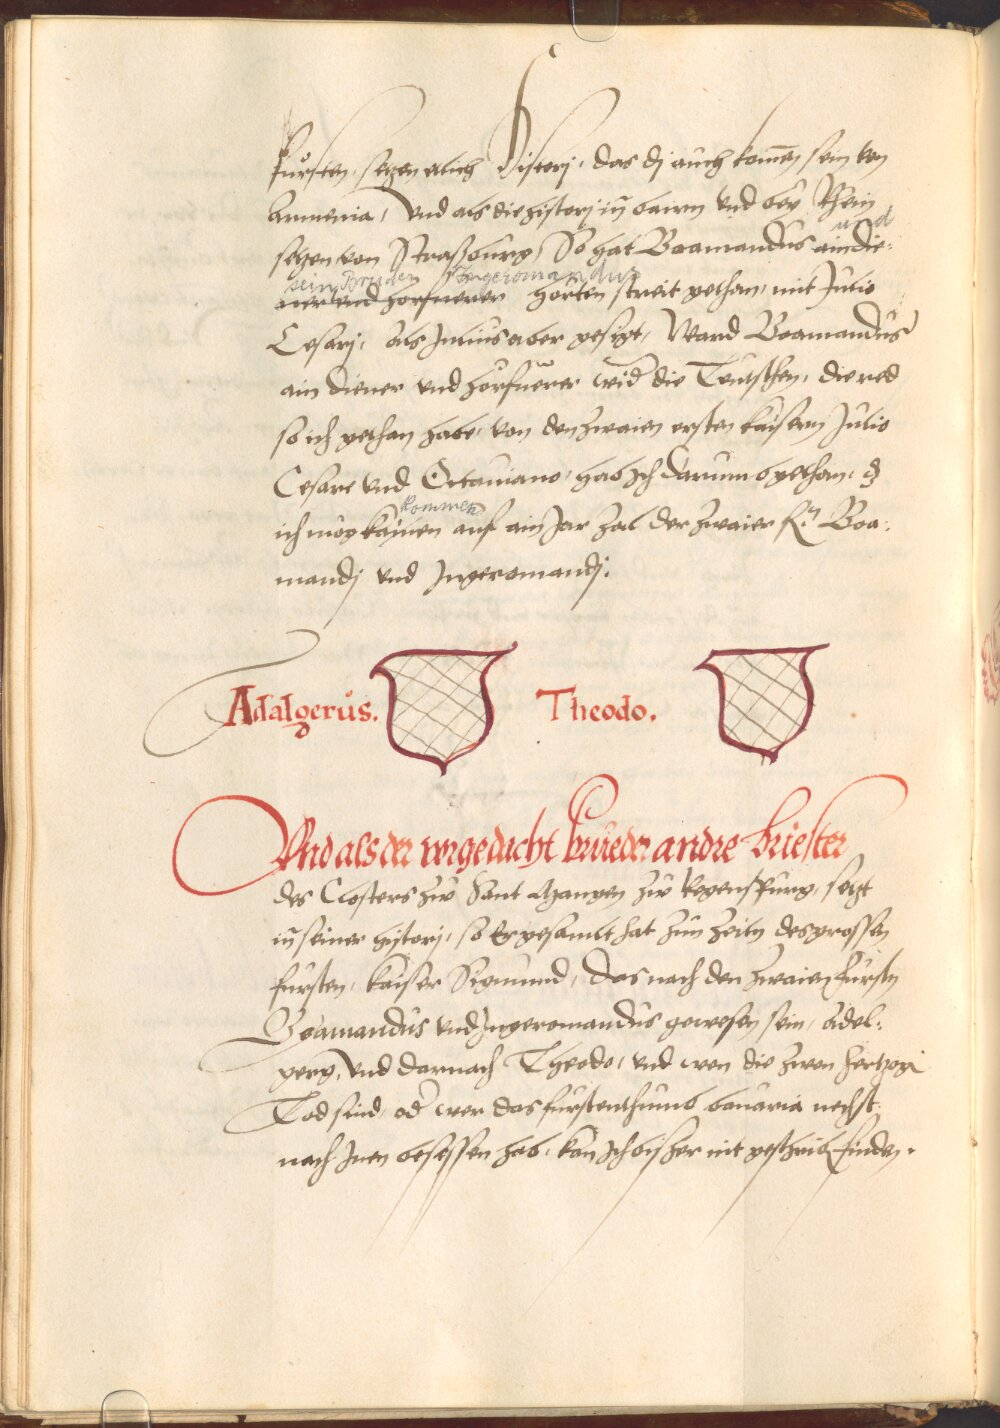 fürsten, setzen etlich Histori, das dj auch komen sein von
Armenia, Vnd als die histori in bairn vnd bey Rhein
setzen von Straßburg, So hat Boamandus ain die-
und
sein Bruder Ingeromandus
ner vnd horfuerer horten streit gethan, mit Julio
Cesarj, als Julius aber gesigt, Ward Boamandus
ain diener vnd horfuerer wider die Teutschen, die red
so ich gethan habe, von den zwaien ersten kaisern Julio
Cesare vnd Octauiano, hab ich darumb gethan, dz
kommen
ich mog kainen auf ain Jar zal der zwaier Boa-
mandj vnd Ingeromandj.
Adalgerus. Theodo.
Vnd als der vorgedacht brueder andre briester
des Closters zw Sant Mangen zw Regenspurg, setzt
in seiner histori, so Er gesamlt hat zun zeitn des grossen
fursten, kaiser Sigmund, Das nach den zwaien fursten
Boamandus vnd Ingeromandus gewesen sein, Adel-
gerg, vnd darnach Theodo, vnd wen die zwen hertzogn
Tod sind, oder wer das furstenthumb bauaria nechst
nach Jnen besessen hab, kan ich bisher nit geschribn finden.